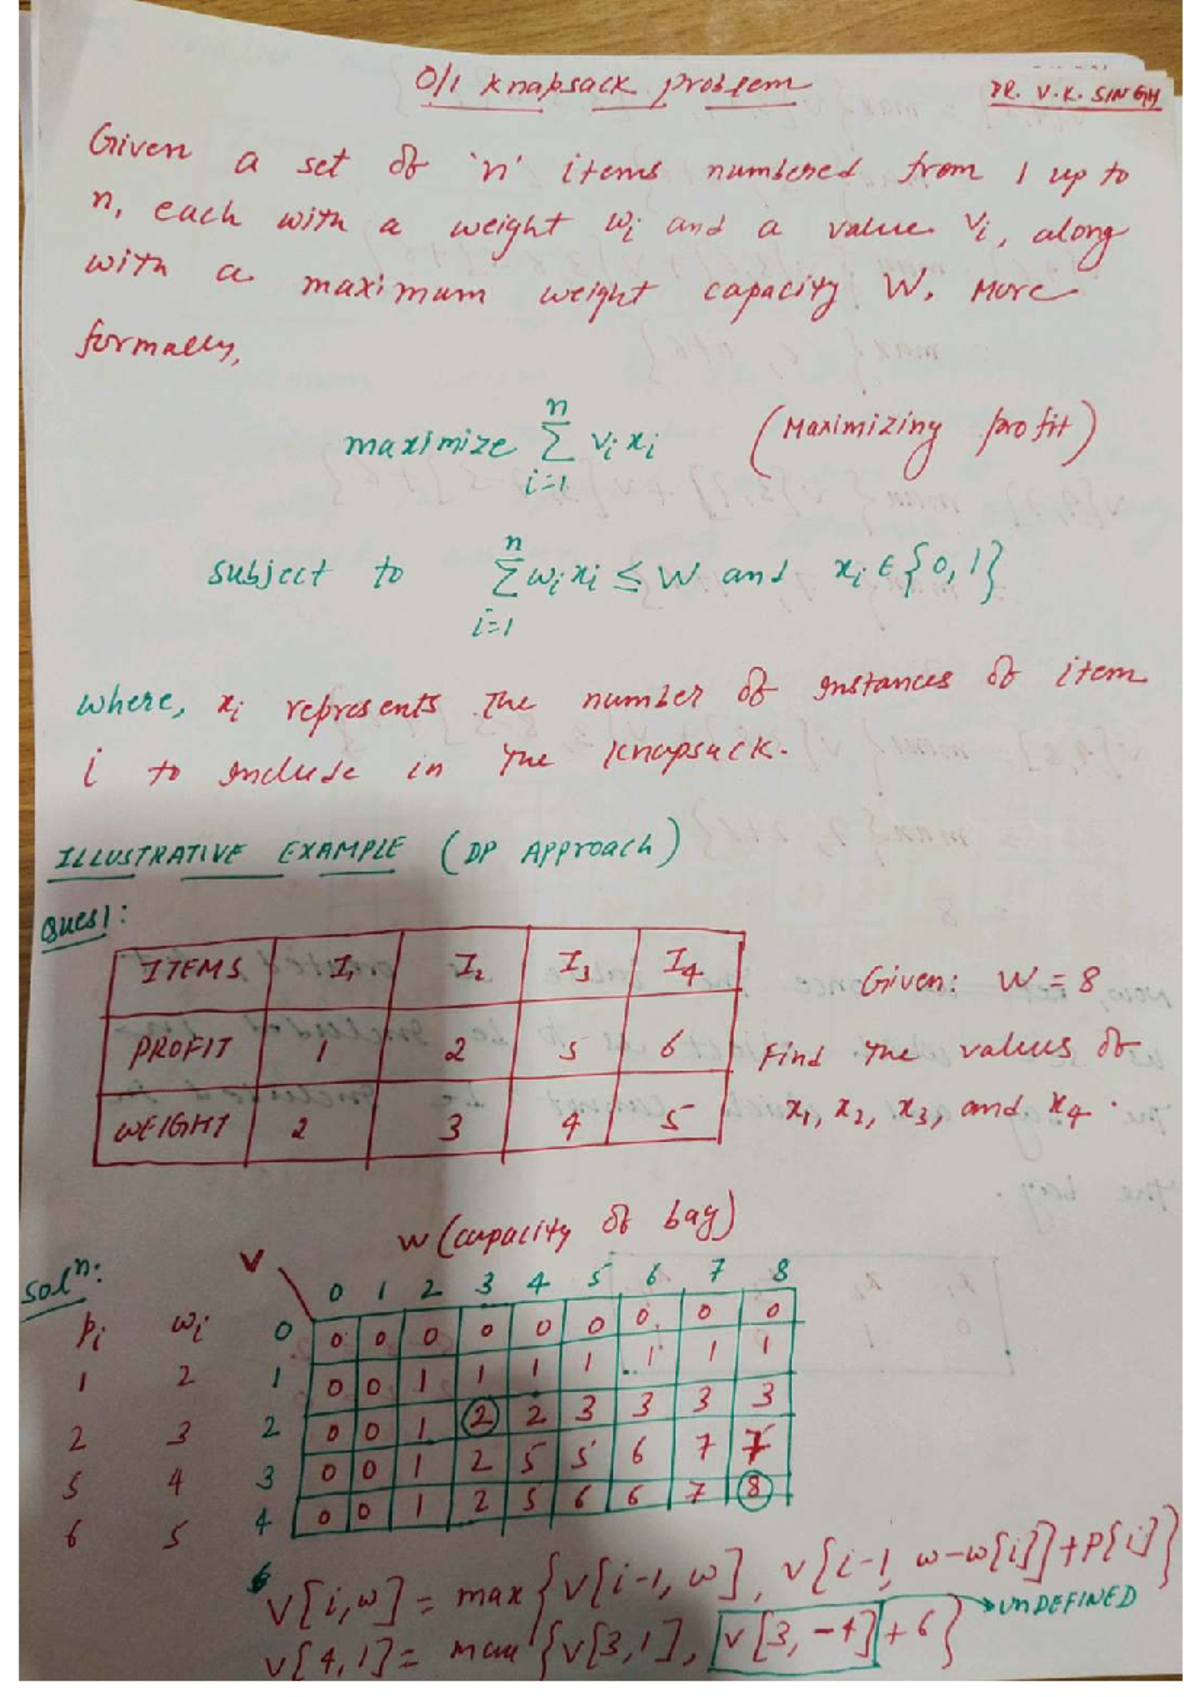 0/1 Knapsack problem
DR. V.K. SINGH
Given a set of 'n' items numbered from 1 up to
n, each with a weight wi and a value vi, along
with a maximum weight capacity W. More
formally,
n
maximize Σ vi xi (Maximizing profit)
i=1
n
subject to Σ wi xi ≤ W and xi ∈ {0, 1}
i=1
where, xi represents the number of instances of item
i to include in the knapsack.
ILLUSTRATIVE EXAMPLE (DP Approach)
Ques1:
ITEMS I1 I2 I3 I4
PROFIT 1 2 5 6
WEIGHT 2 3 4 5
Given: W = 8
Find the values of
x1, x2, x3, and x4.
W (capacity of bag)
Solⁿ:
V 0 1 2 3 4 5 6 7 8
pi wi 0 0 0 0 0 0 0 0 0 0
1 2 1 0 0 1 1 1 1 1 1 1
2 3 2 0 0 1 2 2 3 3 3 3
5 4 3 0 0 1 2 5 5 6 7 7
6 5 4 0 0 1 2 5 6 6 7 8
V[i,w] = max {V[i-1, w], V[i-1, w-w[i]]+P[i]}
V[4,1] = max {V[3,1], V[3,-4]+6} → UNDEFINED